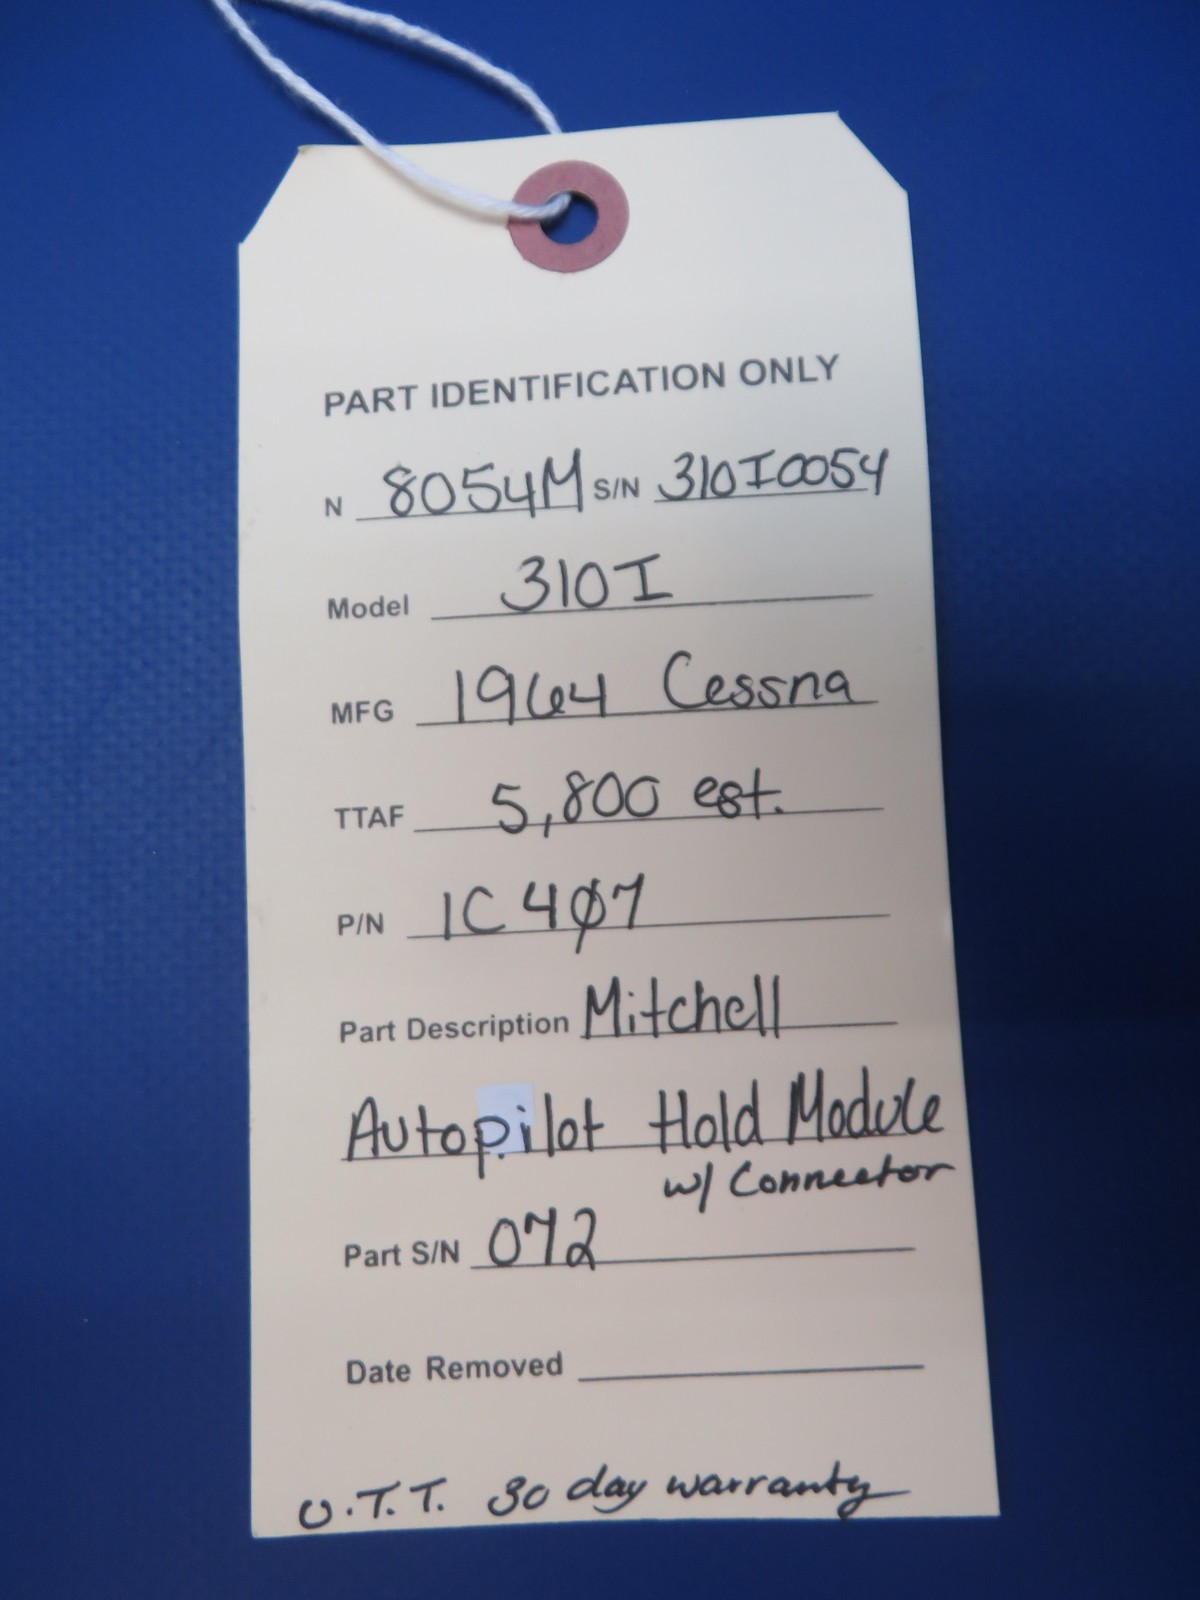 PART IDENTIFICATION ONLY
N 8054M S/N 310I0054
Model 310I
MFG 1964 Cessna
TTAF 5,800 est.
P/N 1C4Ø7
Part Description Mitchell
Autopilot Hold Module
w/ Connector
Part S/N 072
Date Removed
U.T.T. 30 day warranty